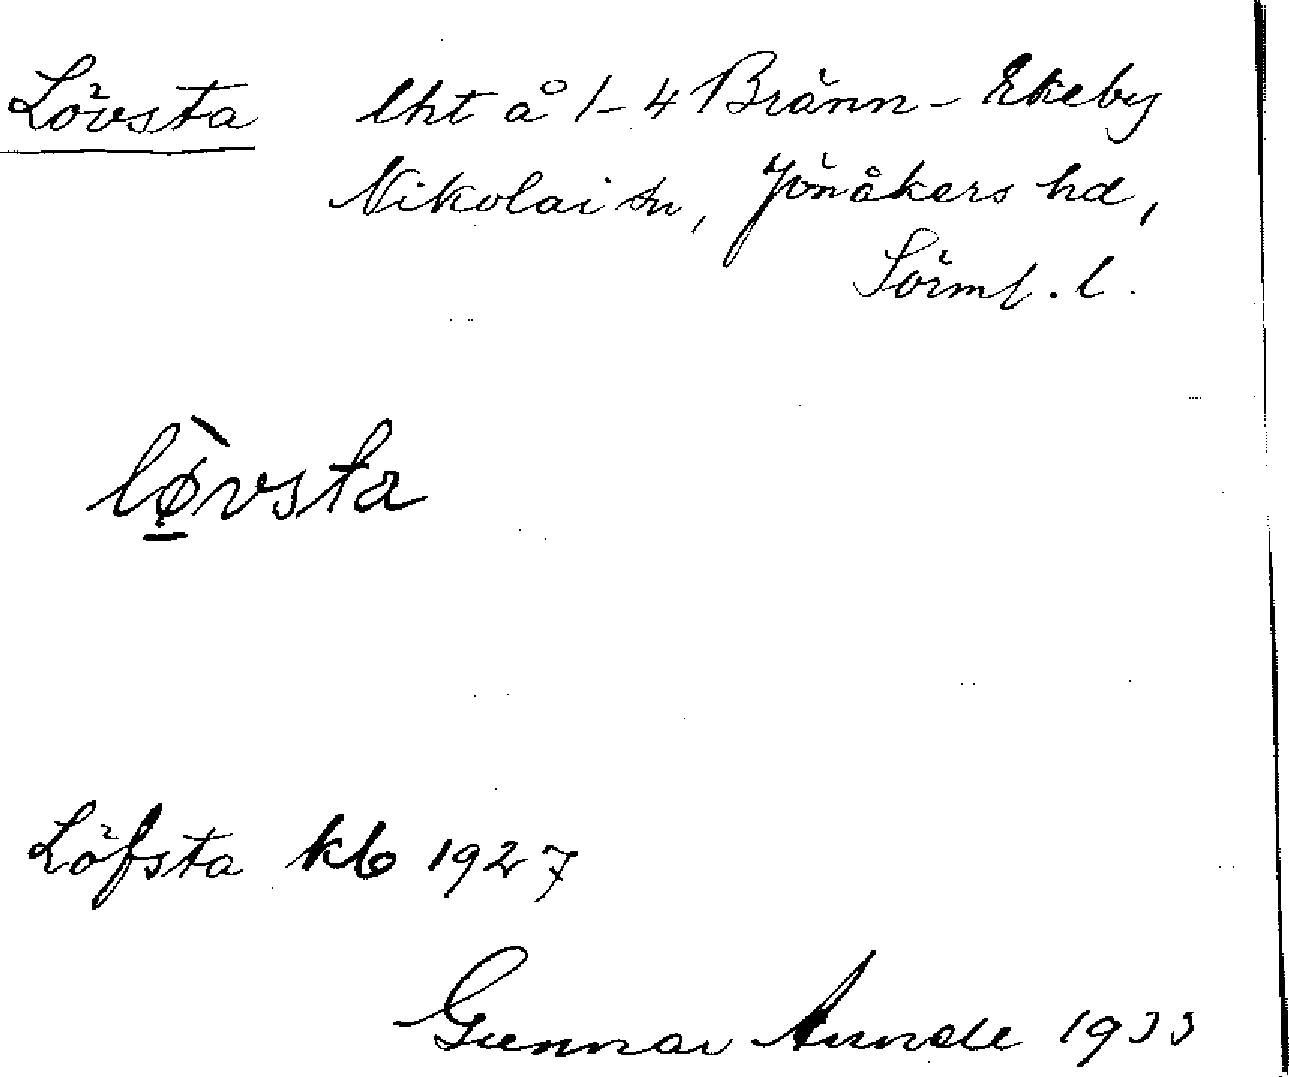 Lövsta lht å 1-4 Bränn-Ekeby
Nikolai sn, Jönåkers hd,
Sörml. l.
lø̀vsta
Löfsta kb 1927
Gunnar 1933